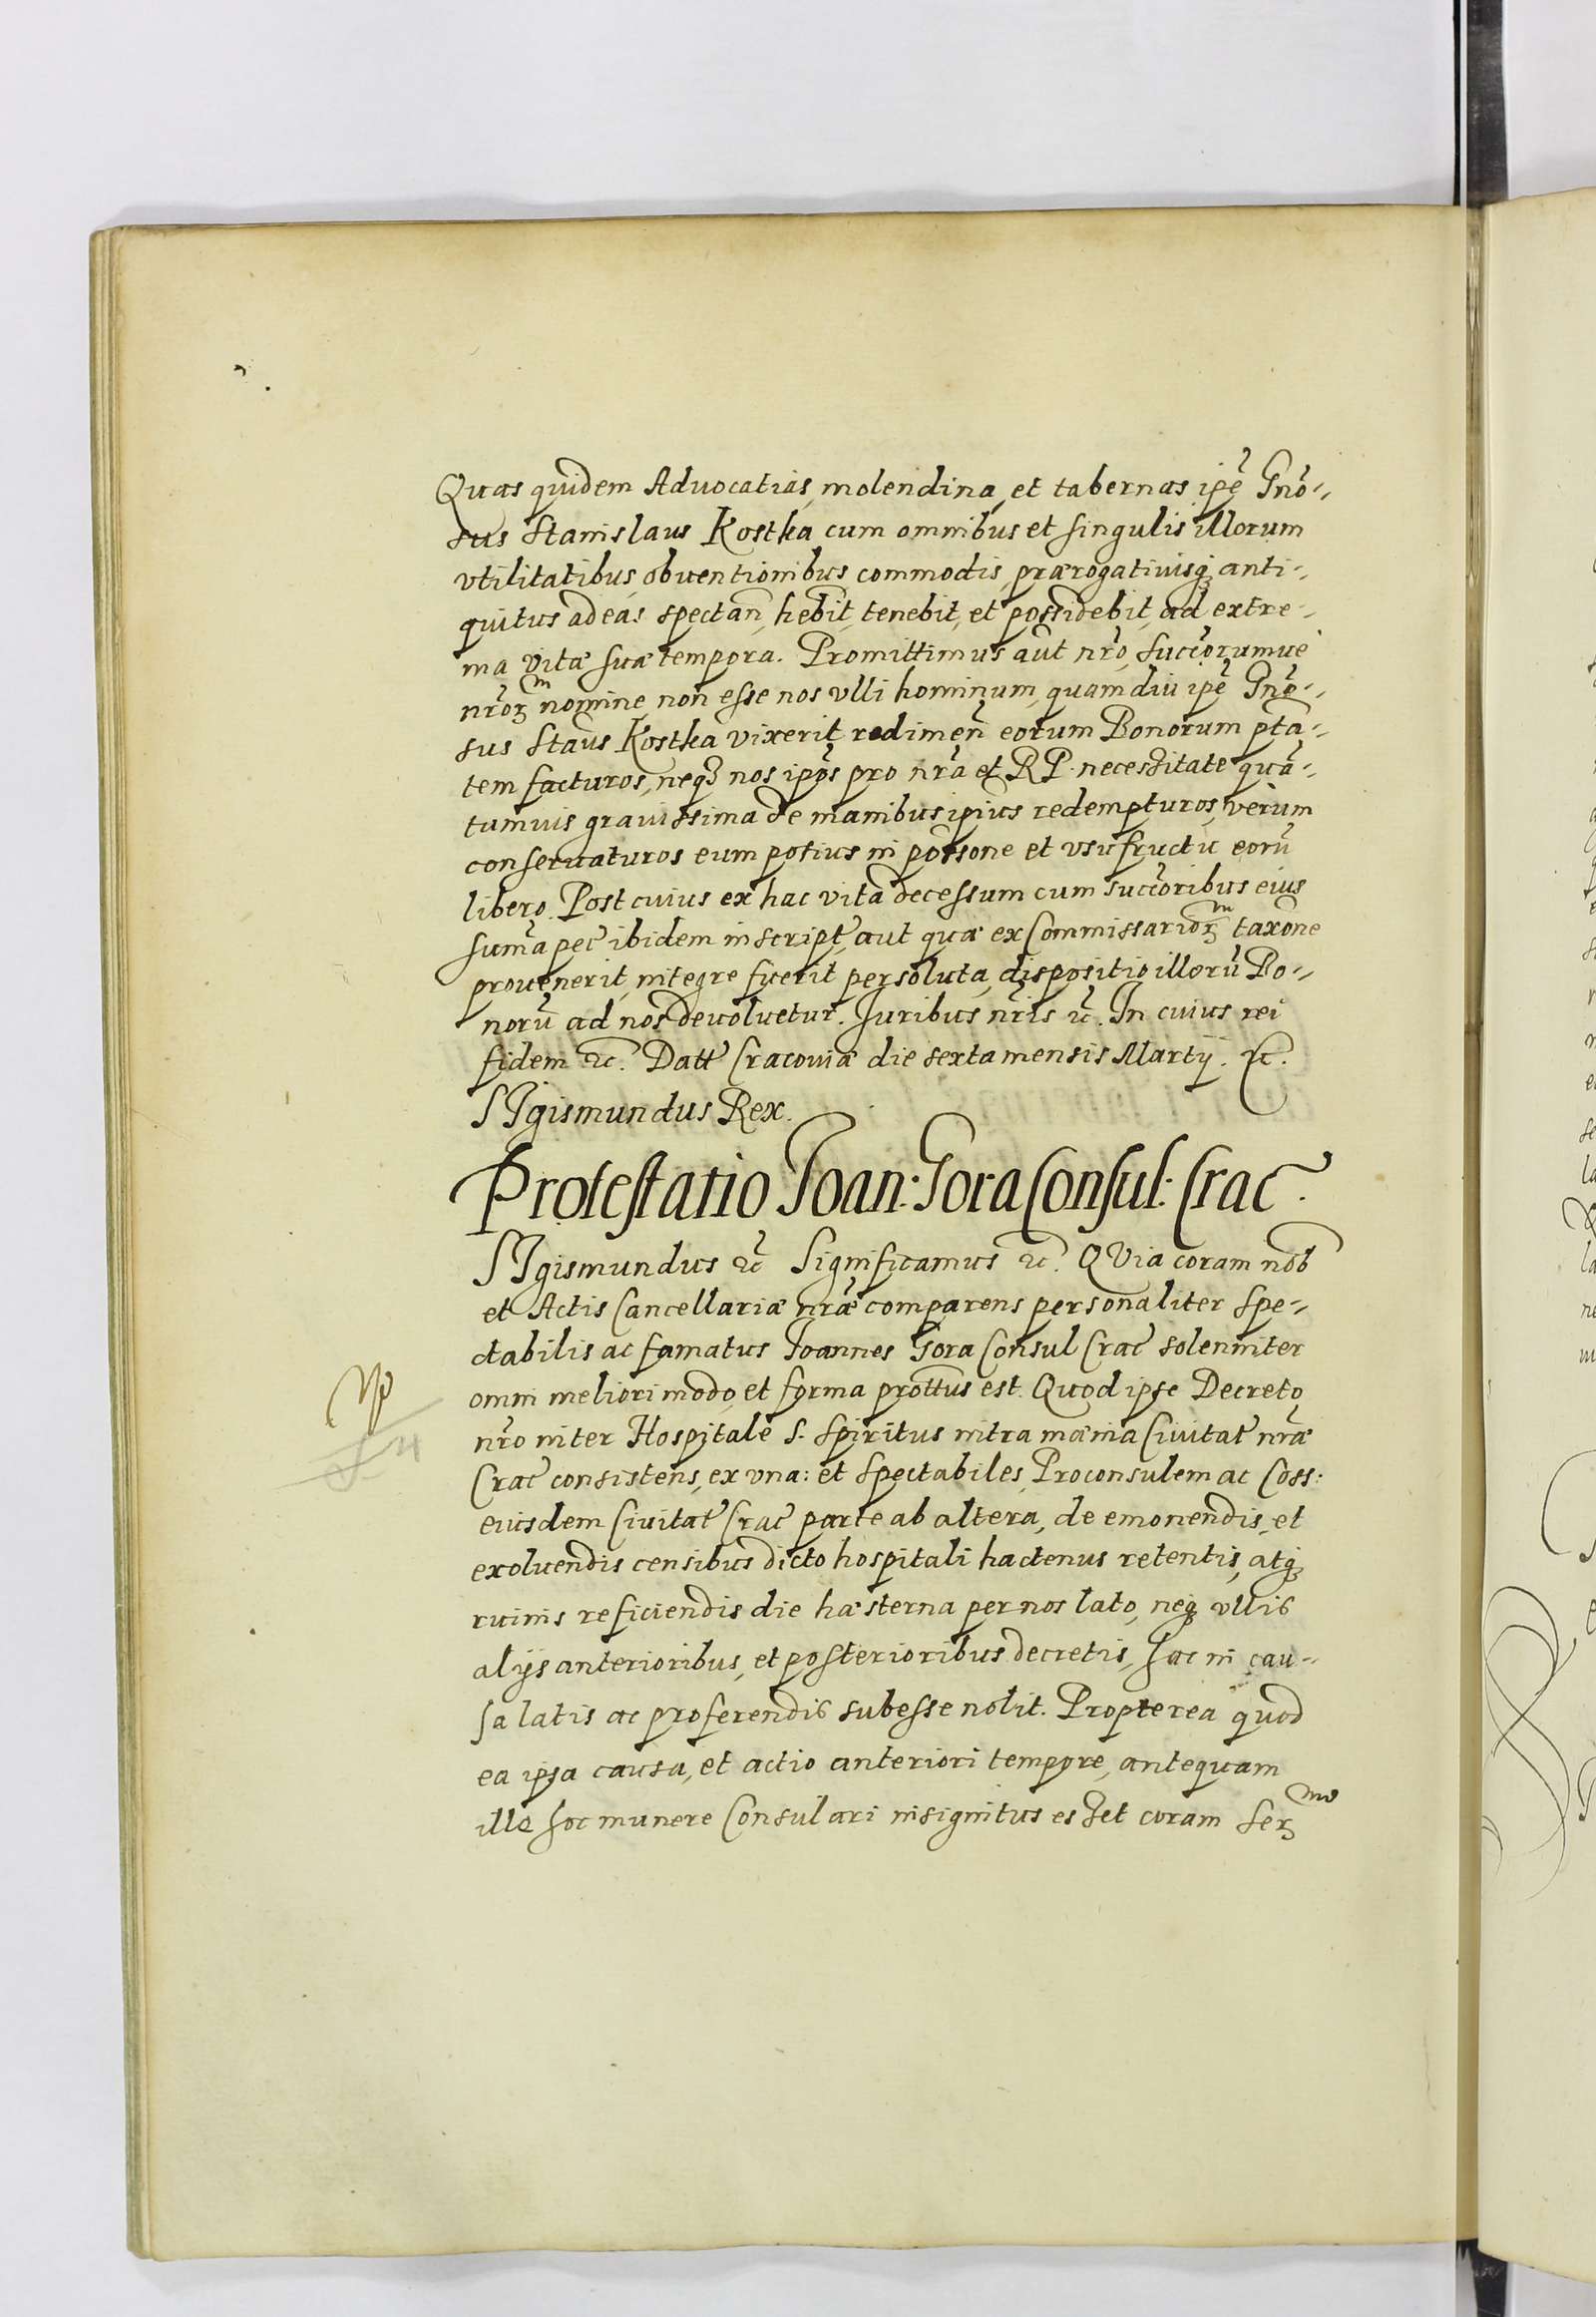 Quas quidem Advocatias, molendina, et tabernas ipẽ Gnõ-
sus Stanislaus Kostka cum omnibus et singulis illorum
vtilitatibus, obuentionibus commodis, prærogatiuisq3 anti-
quitus ad eas spectañ, hebit, tenebit, et possidebit, ad extre-
ma vitæ suæ tempora. Promittimus aũt nrõ, succorumue
nrõꝝ nomine, non esse nos vlli hominum, quam diu ipẽ Gnẽ-
sus Staũs Kostka vixerit redimeñ eorum Bonorum ptã-
tem facturos, neq3 nos ipõs pro nrã et RP. necessitate quã-
tumuis grauissima de manibus ipius redempturos, verum
conseruaturos eum potius in põssone et vsufructu eorũ
libero. Post cuius ex hac vita decessum cum succoribus eius
suma pec̃ ibidem inscript, aut quæ ex Commissarioꝝ taxõne
prouenerit, integre fuerit persoluta, dispositio illorũ Bo-
norũ ad nos deuoluetur. Juribus nrĩs ꝛc̃. In cuius rei
fidem ꝛc̃. Datt Cracouiæ die sexta mensis Martij. ꝛc̃.
SIgismundus Rex.
Protestatio Joan: Gora Consul: Crac̃.
SIgismundus ꝛc̃ Significamus ꝛc̃. QVia coram nob
et Actis Cancellariæ nræ̃ comparens personaliter Spe-
ctabilis ac famatus Joannes Gora Consul Crac̃ solenniter
omni meliori modo, et forma prottus est. Quod ipse Decreto
nrõ inter Hospitale S. Spiritus intra mœnia Ciuitat nræ̃
Crac̃ consistens, ex vna: et Spectabiles, Proconsulem ac Coss:
eiusdem Ciuitat Crac̃ parte ab altera, de emonendis, et
exoluendis censibus dicto hospitali hactenus retentis, atq3
ruinis reficiendis die hæsterna per nos lato, neq3 vllis
alijs anterioribus, et posterioribus decretis, hac in cau-
sa latis ac proferendis subesse nolit. Propterea quod
ea ipsa causa, et actio anteriori tempore, antequam
ille hoc munere Consulari insignitus esset coram Serᵐᵒ